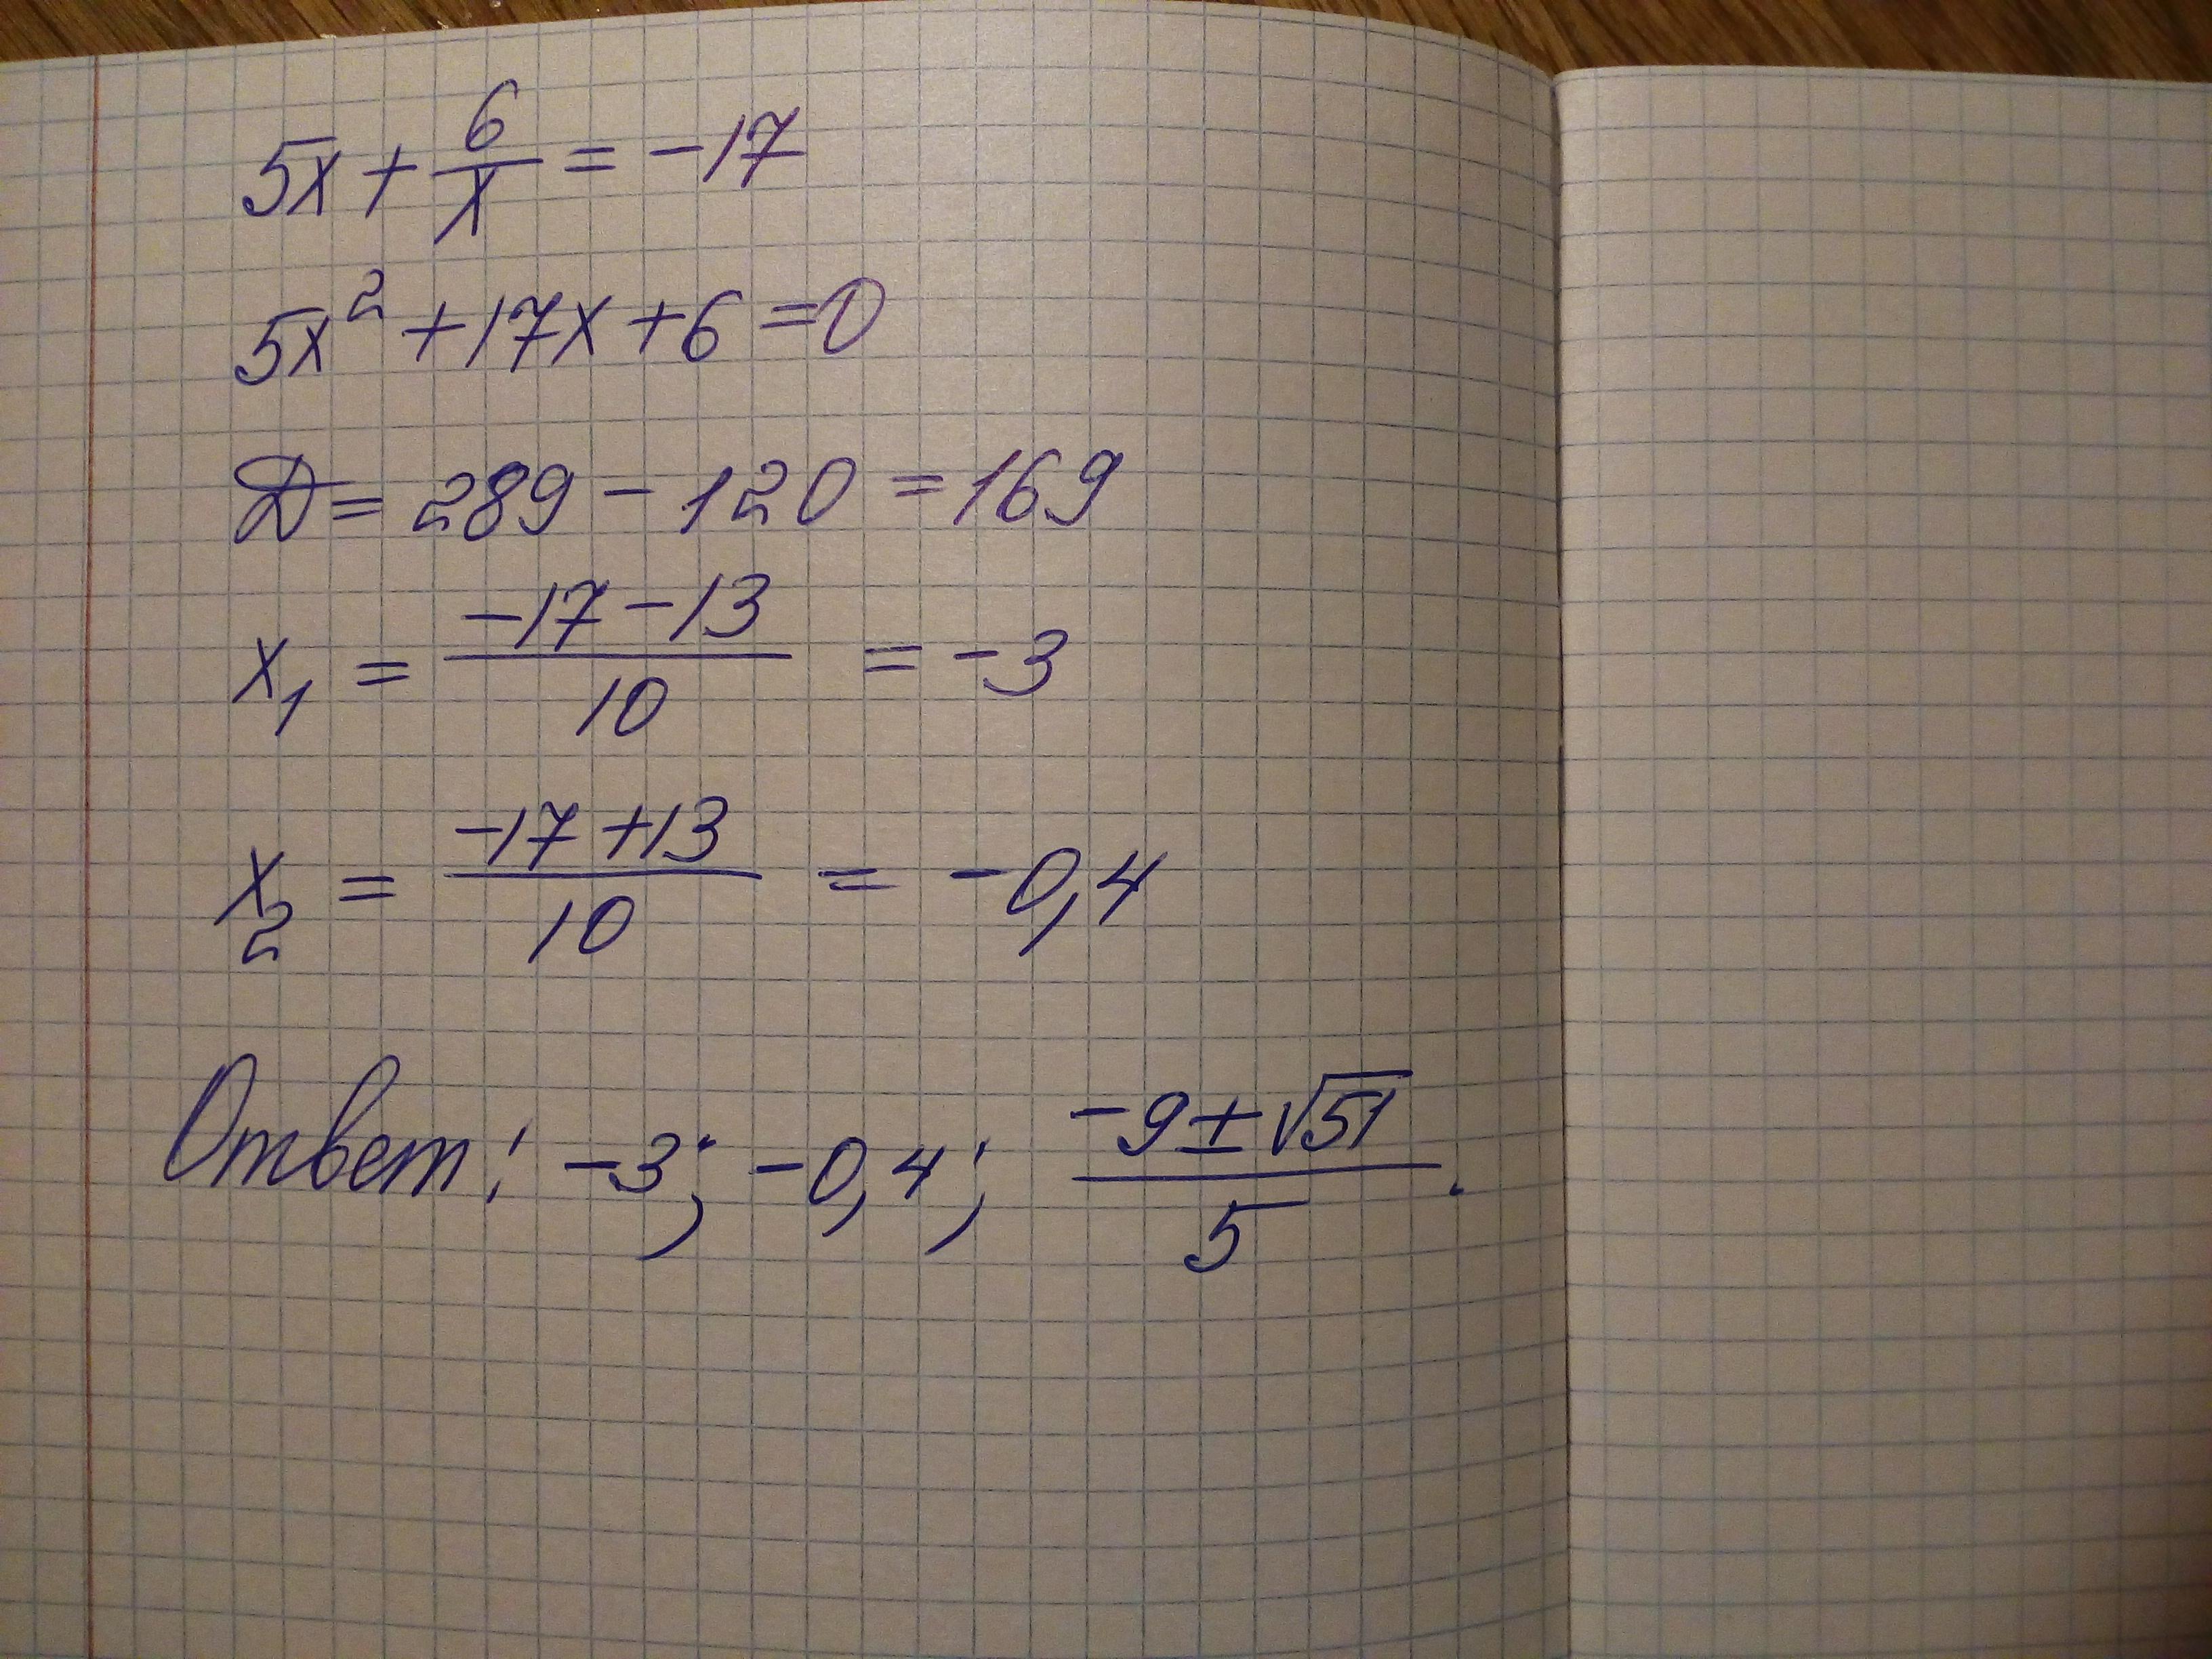 5x + 6/x = -17
5x² + 17x + 6 = 0
D = 289 - 120 = 169
x₁ = (-17 - 13)/10 = -3
x₂ = (-17 + 13)/10 = -0,4
Ответ: -3; -0,4; (-9 ± √51)/5.